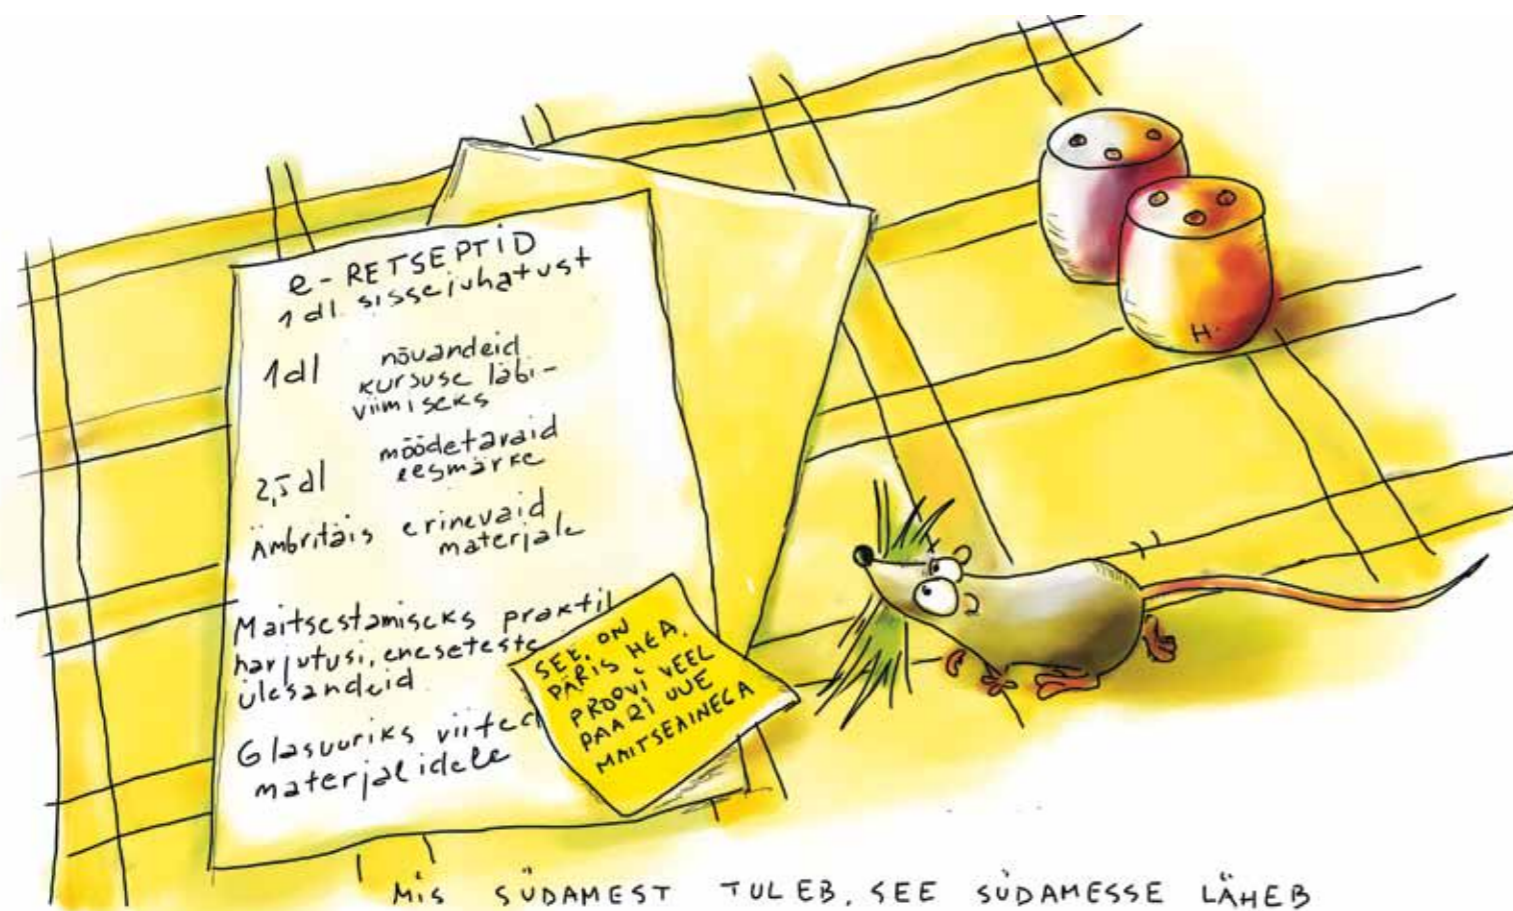 e-RETSEPTID
1 dl. sissejuhatust
1dl nõuandeid
kursuse läbi-
viimiseks
2,5 dl mõõdetavaid
eesmärke
Ämbritäis erinevaid
materjale
Maitsestamiseks praktil
harjutusi, eneseteste
ülesandeid
Glasuuriks viited
materjalidele
SEE ON
PÄRIS HEA.
PROOVI VEEL
PAARI UUE
MAITSEAINEGA
H.
MIS SÜDAMEST TULEB, SEE SÜDAMESSE LÄHEB